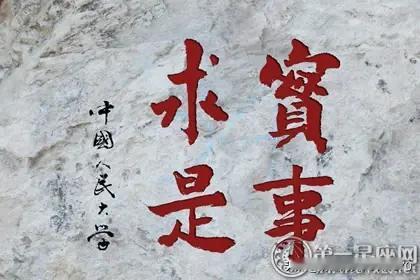 實事
求是
中國人民大学
第一星座网